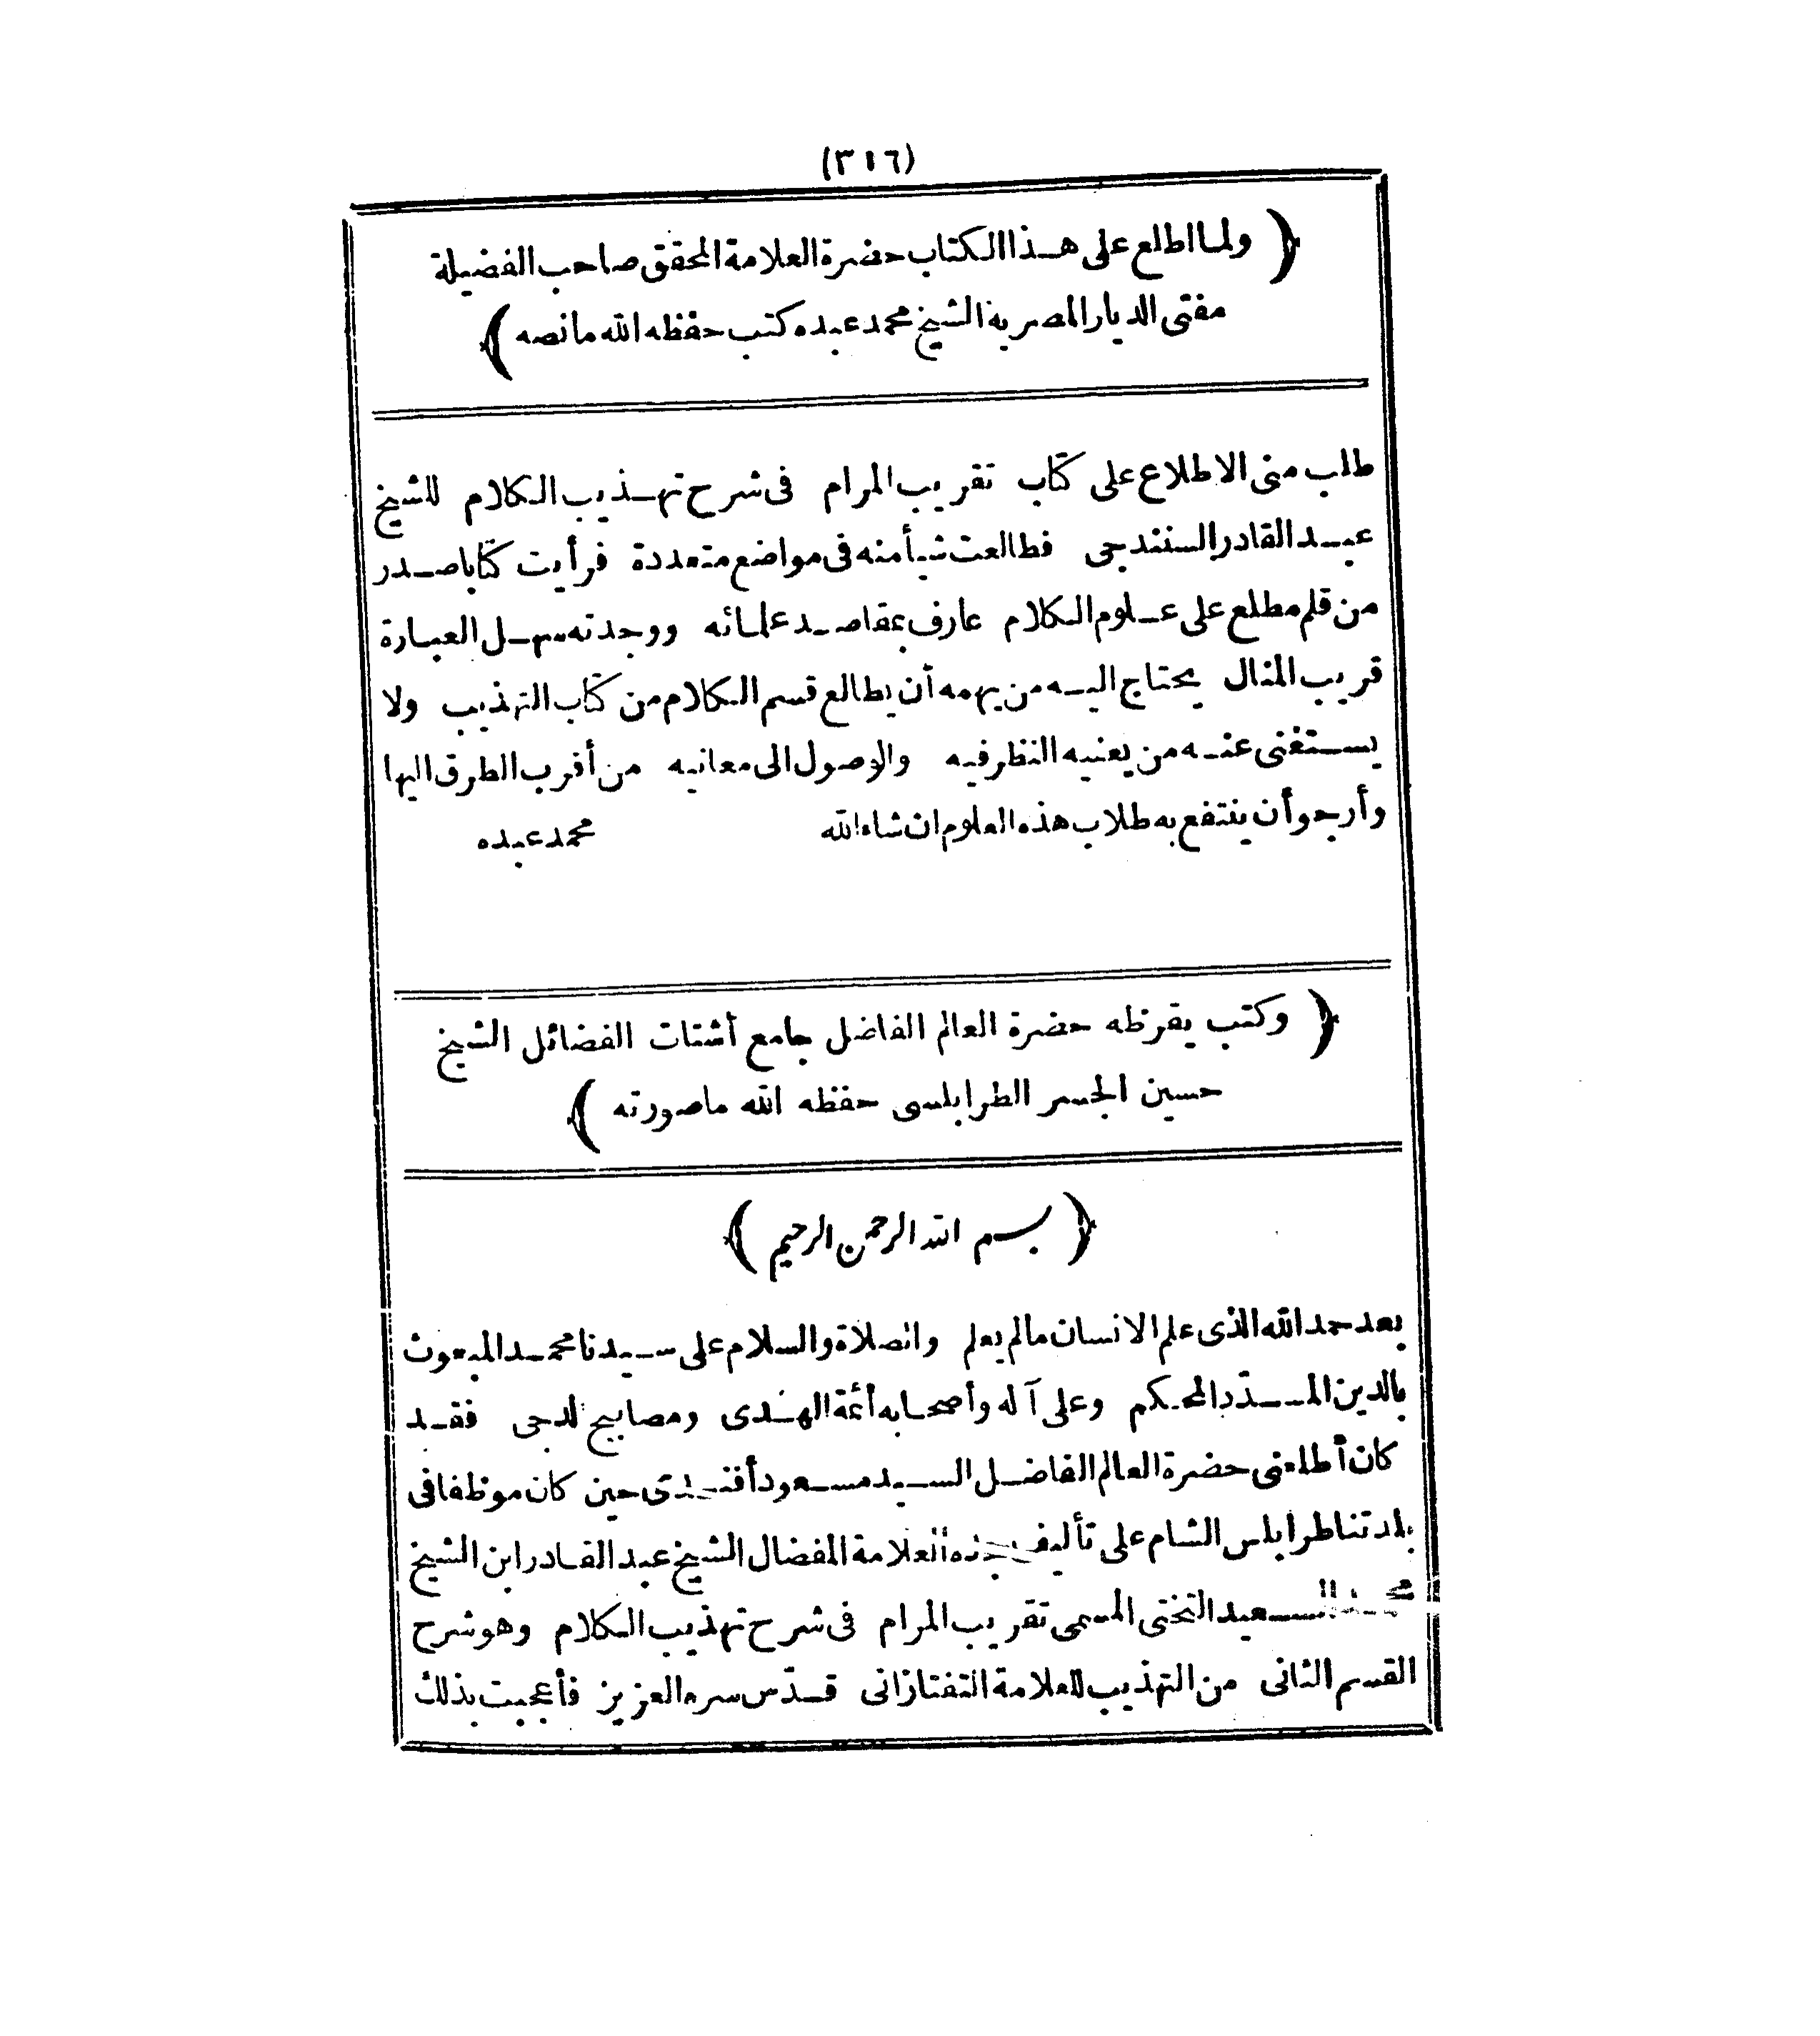 (٣١٦)
﴿ ولما اطلع على هذا الكتاب حضرة العلامة المحقق صاحب الفضيلة
مفتى الديار المصرية الشيخ محمد عبده كتب حفظه الله مانصه ﴾
طلب منى الاطلاع على كتاب تقريب المرام فى شرح تهذيب الكلام للشيخ
عبد القادر السنندجى فطالعت شيأ منه فى مواضع متعددة فرأيت كتابا صدر
من قلم مطلع على علوم الكلام عارف بمقاصد علمائه ووجدته سهل العبارة
قريب المنال يحتاج اليه من يهمه أن يطالع قسم الكلام من كتاب التهذيب ولا
يستغنى عنه من يعنيه النظر فيه والوصول الى معانيه من أقرب الطرق اليها
وأرجو أن ينتفع به طلاب هذه العلوم ان شاء الله محمد عبده
﴿ وكتب يقرظه حضرة العالم الفاضل جامع أشتات الفضائل الشيخ
حسين الجسر الطرابلسى حفظه الله ماصورته ﴾
﴿ بسم الله الرحمن الرحيم ﴾
بعد حمد الله الذى علم الانسان مالم يعلم والصلاة والسلام على سيدنا محمد المبعوث
بالدين المسدّد المحكم وعلى آله وأصحابه أئمة الهدى ومصابيح الدجى فقد
كان أطلعنى حضرة العالم الفاضل السيد مسعود أفندى حين كان موظفا فى
بلدتنا طرابلس الشام على تأليف جده العلامة المفضال الشيخ عبد القادر ابن الشيخ
محمد السعيد التختى المسمى تقريب المرام فى شرح تهذيب الكلام وهو شرح
القسم الثانى من التهذيب للعلامة التفتازانى قدّس سره العزيز فأعجبت بذلك